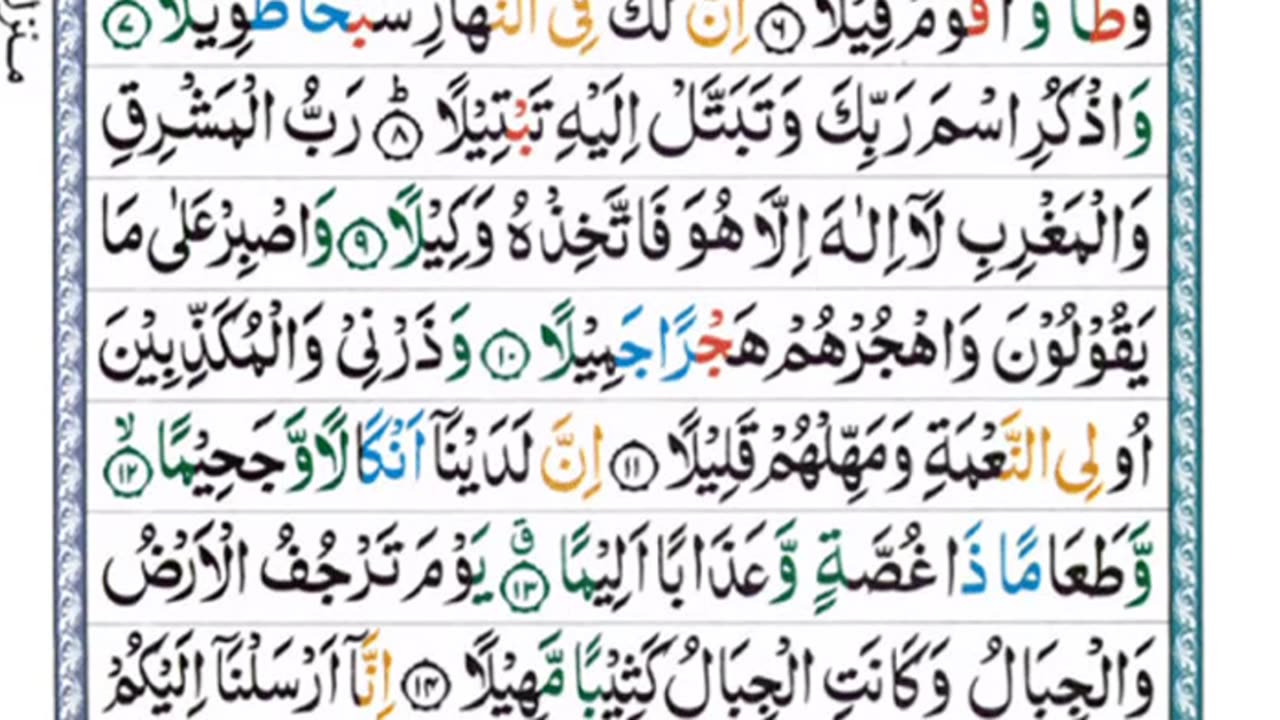 وَطْـًٔا وَّاَقْوَمُ قِيْلًا ۶ اِنَّ لَكَ فِى النَّهَارِ سَبْحًا طَوِيْلًا ۷
وَاذْكُرِ اسْمَ رَبِّكَ وَتَبَتَّلْ اِلَيْهِ تَبْتِيْلًا ؕ ۸ رَبُّ الْمَشْرِقِ
وَالْمَغْرِبِ لَاۤ اِلٰهَ اِلَّا هُوَ فَاتَّخِذْهُ وَكِيْلًا ۹ وَاصْبِرْ عَلٰى مَا
يَقُوْلُوْنَ وَاهْجُرْهُمْ هَجْرًا جَمِيْلًا ۱۰ وَذَرْنِىْ وَالْمُكَذِّبِيْنَ
اُولِى النَّعْمَةِ وَمَهِّلْهُمْ قَلِيْلًا ۱۱ اِنَّ لَدَيْنَاۤ اَنْكَالًا وَّجَحِيْمًا ۙ ۱۲
وَّطَعَامًا ذَا غُصَّةٍ وَّعَذَابًا اَلِيْمًا ۗ ۱۳ يَوْمَ تَرْجُفُ الْاَرْضُ
وَالْجِبَالُ وَكَانَتِ الْجِبَالُ كَثِيْبًا مَّهِيْلًا ۱۴ اِنَّاۤ اَرْسَلْنَاۤ اِلَيْكُمْ